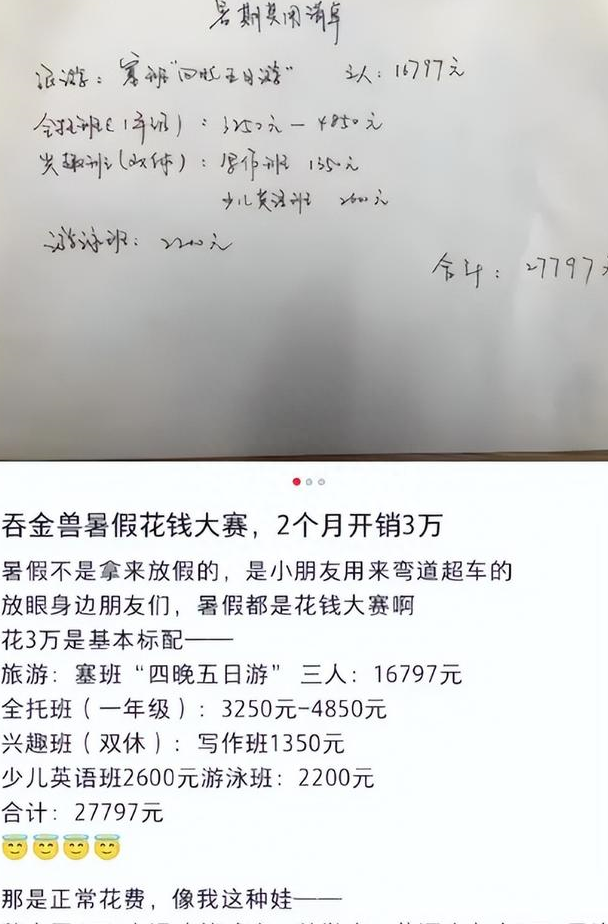 暑期费用清单
旅游：塞班“四晚五日游” 三人：16797元
全托班（1年级）：3250元—4850元
兴趣班（双休）：写作班 1350元
少儿英语班 2600元
游泳班：2200元
合计：27797元
吞金兽暑假花钱大赛，2个月开销3万
暑假不是拿来放假的，是小朋友用来弯道超车的
放眼身边朋友们，暑假都是花钱大赛啊
花3万是基本标配——
旅游：塞班“四晚五日游” 三人：16797元
全托班（一年级）：3250元-4850元
兴趣班（双休）：写作班1350元
少儿英语班2600元游泳班：2200元
合计：27797元
那是正常花费，像我这种娃——